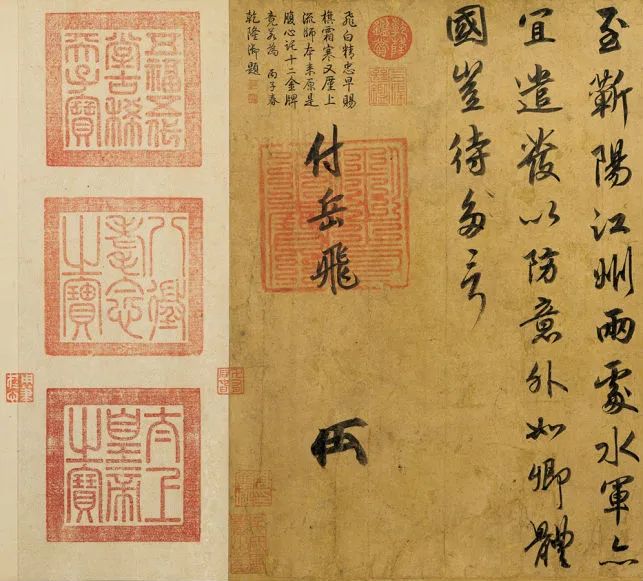 至蘄陽江州兩處水軍亦
宜遣發以防意外如卿體
國豈待多言
付岳飛
飛白精忠早賜
旗霜寒又歷上
流師本來原是
腹心託十二金牌
竟若為 丙子春
乾隆御題
乾隆鑑賞
五福五代
堂古稀
天子寶
八徵
耄念
之寶
太上
皇帝
之寶